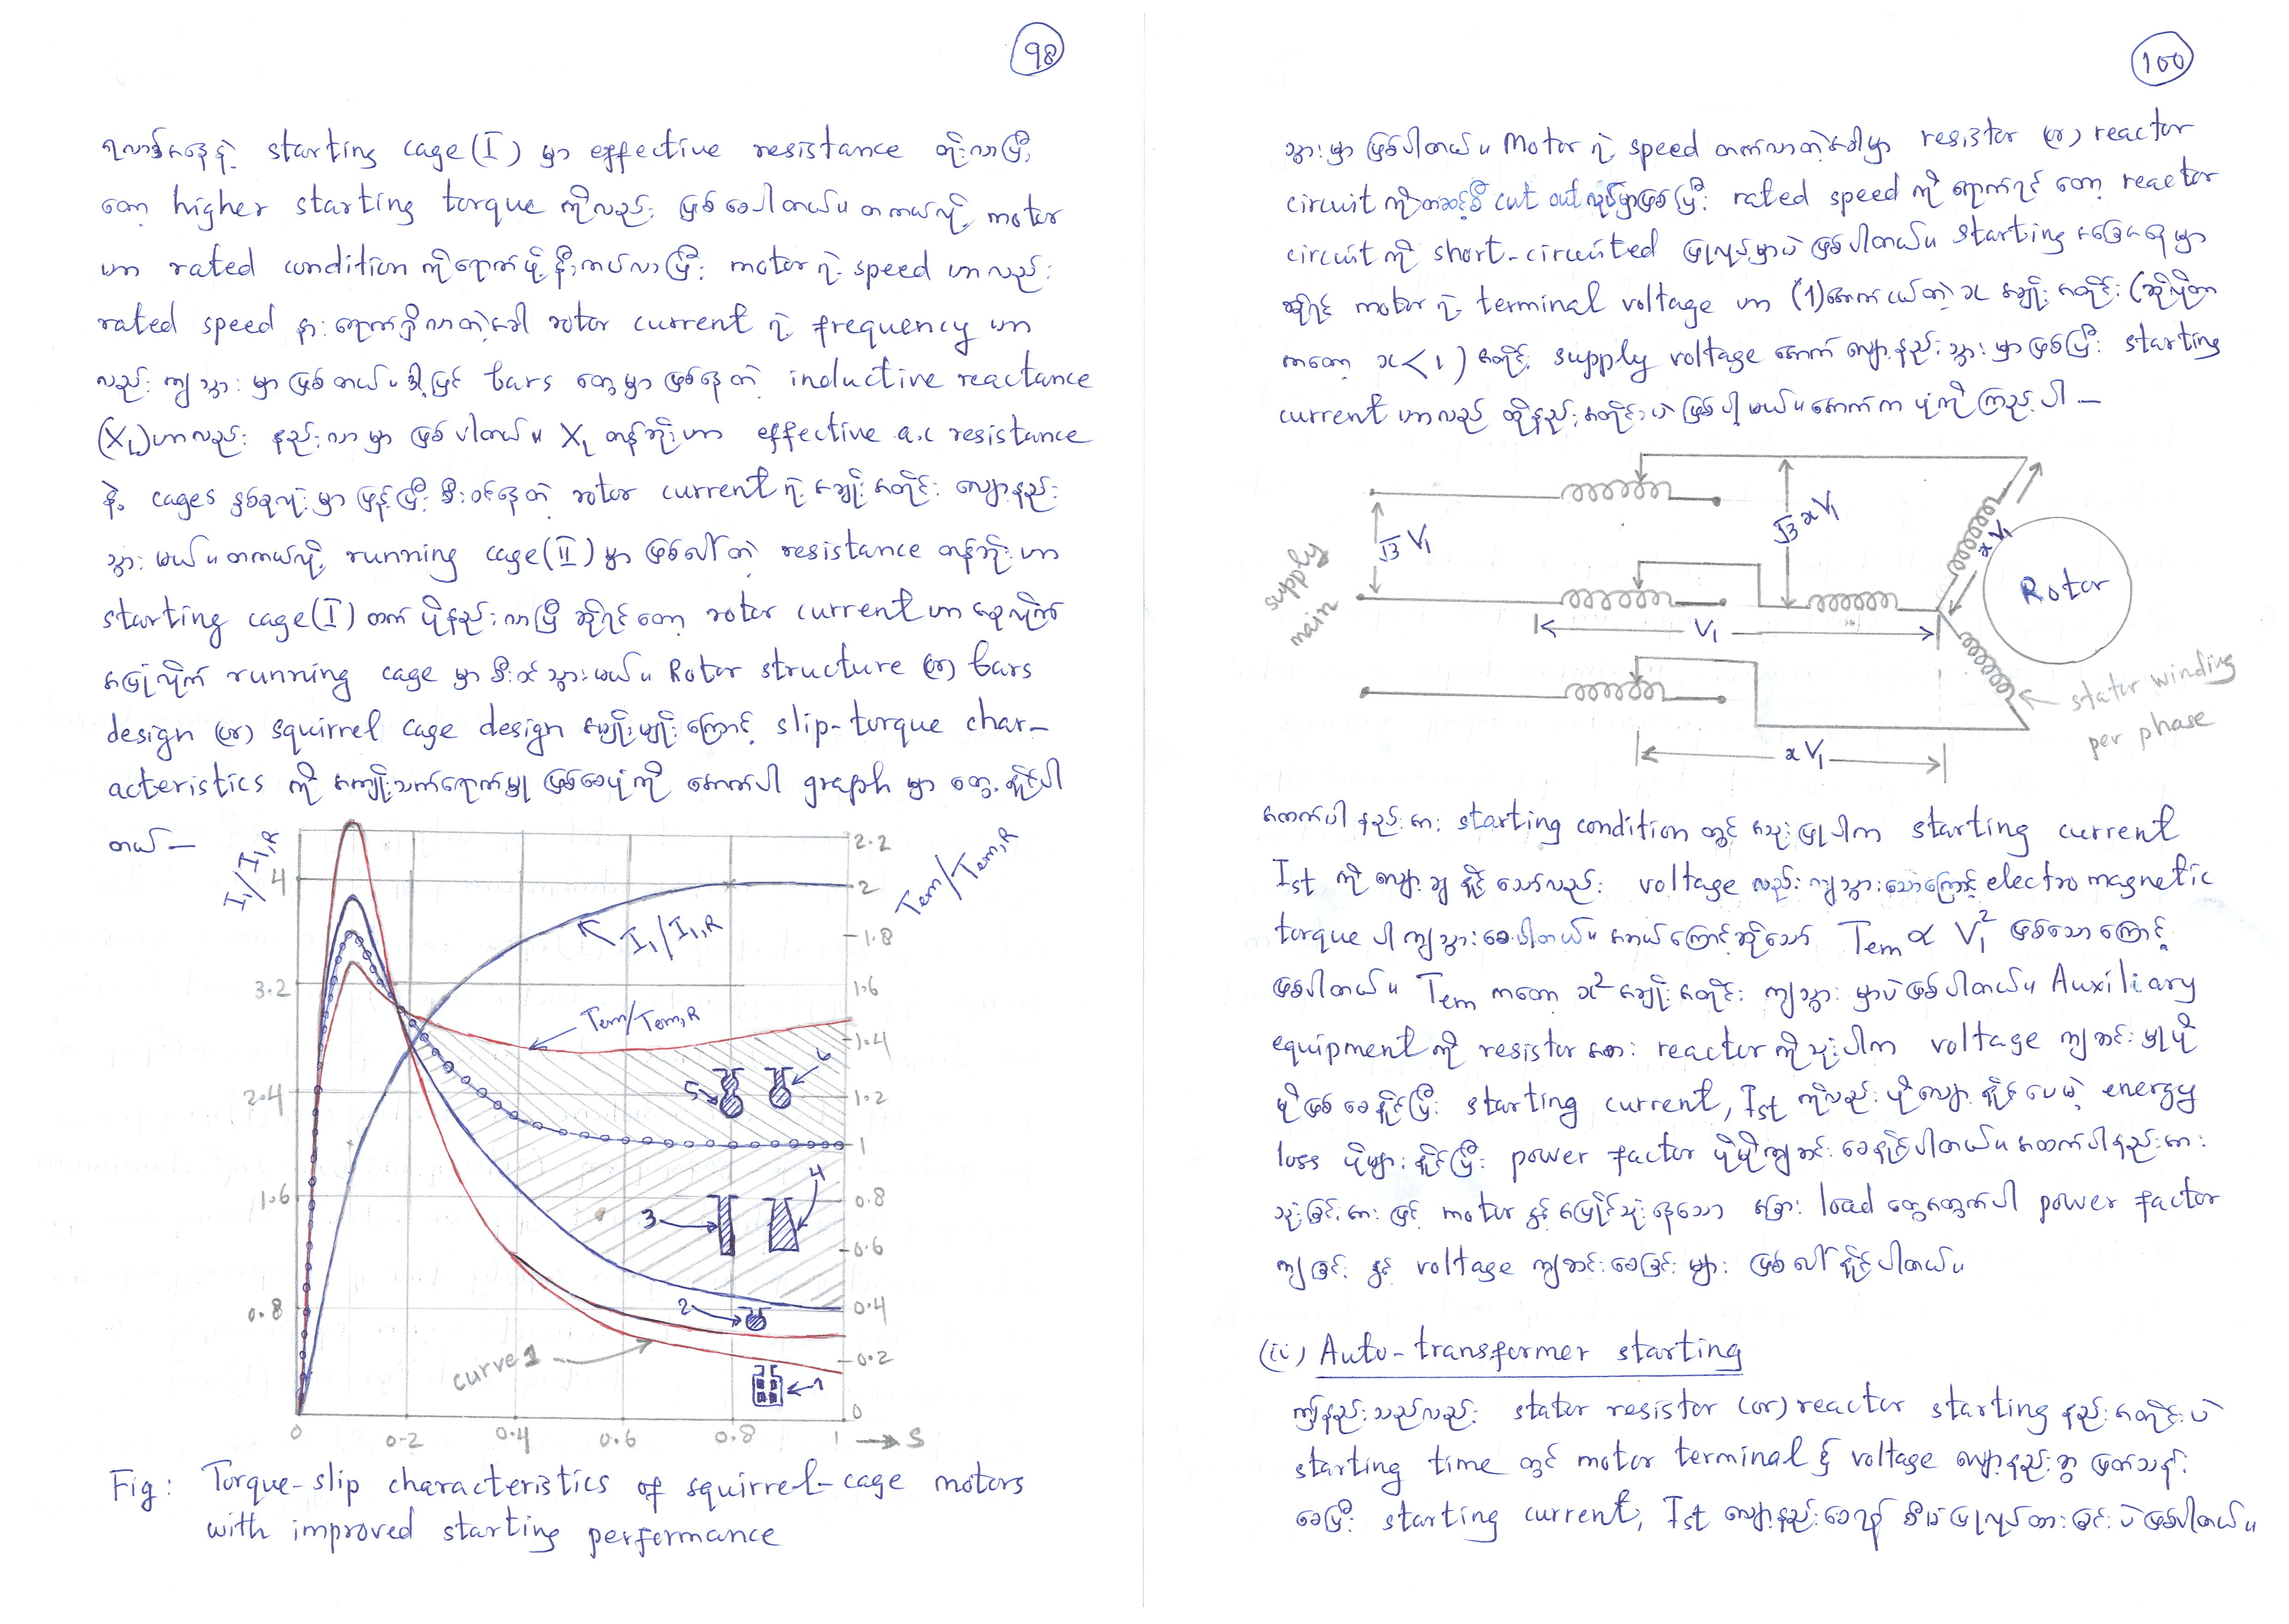 98
ရလာဒ်အနေနဲ့ starting cage (I) မှာ effective resistance တိုးလာပြီး
တော့ higher starting torque ကိုလည်း ဖြစ်စေပါတယ်။ တကယ်လို့ motor
ဟာ rated condition ကိုရောက်ဖို့ နီးကပ်လာပြီး motor ရဲ့ speed ဟာလည်း
rated speed နား ရောက်ရှိလာတဲ့အခါ rotor current ရဲ့ frequency ဟာ
လည်း ကျသွားမှာ ဖြစ်တယ်။ ဒါ့ပြင် bars တွေမှာ ဖြစ်နေတဲ့ inductive reactance
(X₁) ဟာလည်း နည်းလာမှာ ဖြစ်ပါတယ်။ X₁ တန်ဘိုးဟာ effective a.c resistance
နဲ့ cages နှစ်ခုလုံးမှာ ဖြန့်ပြီး စီးဝင်နေတဲ့ rotor current ရဲ့ အချိုးအတိုင်း လျော့နည်း
သွားမယ်။ တကယ်လို့ running cage (II) မှာ ဖြစ်ပေါ်တဲ့ resistance တန်ဘိုးဟာ
starting cage (I) ထက် ပိုနည်းလာပြီ ဆိုရင်တော့ rotor current ဟာ အစုလိုက်
အပြုံလိုက် running cage မှာ စီးဝင်သွားမယ်။ Rotor structure (or) bars
design (or) squirrel cage design အမျိုးမျိုးကြောင့် slip-torque char-
acteristics ကို အကျိုးသက်ရောက်မှု ဖြစ်စေပုံကို အောက်ပါ graph မှာ တွေ့နိုင်ပါ
တယ် —
I₁/I₁,R
Tem/Tem,R
4
3.2
2.4
1.6
0.8
2.2
2
1.8
1.6
1.4
1.2
1
0.8
0.6
0.4
0.2
0
I₁/I₁,R
Tem/Tem,R
5
6
3
4
2
curve 1
1
0 0.2 0.4 0.6 0.8 1 → S
Fig: Torque-slip characteristics of squirrel-cage motors
with improved starting performance
100
သွားမှာ ဖြစ်ပါတယ်။ Motor ရဲ့ speed တက်လာတဲ့အခါမှာ resistor (or) reactor
circuit ကို တဆင့်စီ cut out လုပ်မှာဖြစ်ပြီး rated speed ကို ရောက်ရင်တော့ reactor
circuit ကို short-circuited ပြုလုပ်မှာပဲ ဖြစ်ပါတယ်။ Starting အခြေအနေမှာ
ဆိုရင် motor ရဲ့ terminal voltage ဟာ (1) အောက်ငယ်တဲ့ x အချိုးအတိုင်း (ဆိုလိုတာ
ကတော့ x < 1) အတိုင်း supply voltage အောက် လျော့နည်းသွားမှာဖြစ်ပြီး starting
current ဟာလည်း ထို့နည်းအတိုင်းပဲ ဖြစ်ပါ့မယ်။ အောက်ကပုံကို ကြည့်ပါ —
supply
main
√3 V₁
√3 x V₁
x V₁
Rotor
V₁
stator winding
per phase
x V₁
အထက်ပါ နည်းအား starting condition တွင် အသုံးပြုပါက starting current
Ist ကို လျော့ချနိုင်သော်လည်း voltage လည်း ကျသွားသောကြောင့် electro magnetic
torque ပါ ကျသွားစေပါတယ်။ အဘယ်ကြောင့်ဆိုသော် Tem ∝ V₁² ဖြစ်သောကြောင့်
ဖြစ်ပါတယ်။ Tem ကတော့ x² အချိုးအတိုင်း ကျသွားမှာပဲဖြစ်ပါတယ်။ Auxiliary
equipment ကို resistor အစား reactor ကိုသုံးပါက voltage ကျဆင်းမှုပို
မိုဖြစ်စေနိုင်ပြီး starting current, Ist ကိုလည်း ပိုလျော့နိုင်ပေမဲ့ energy
loss ပိုများနိုင်ပြီး power factor ပိုမိုကျဆင်းစေနိုင်ပါတယ်။ အထက်ပါနည်းအား
သုံးခြင်းအားဖြင့် motor နှင့် အပြိုင်သုံးနေသော အခြား load တွေအတွက်ပါ power factor
ကျခြင်း နှင့် voltage ကျဆင်းစေခြင်းများ ဖြစ်ပေါ်နိုင်ပါတယ်။
(ii) Auto-transformer starting
ဤနည်းသည်လည်း stator resistor (or) reactor starting နည်းအတိုင်းပဲ
starting time တွင် motor terminal ၌ voltage လျော့နည်းစွာ ဖြတ်သန်း
စေပြီး starting current, Ist လျော့နည်းစေရန် စီမံပြုလုပ်ထားခြင်းပဲဖြစ်ပါတယ်။